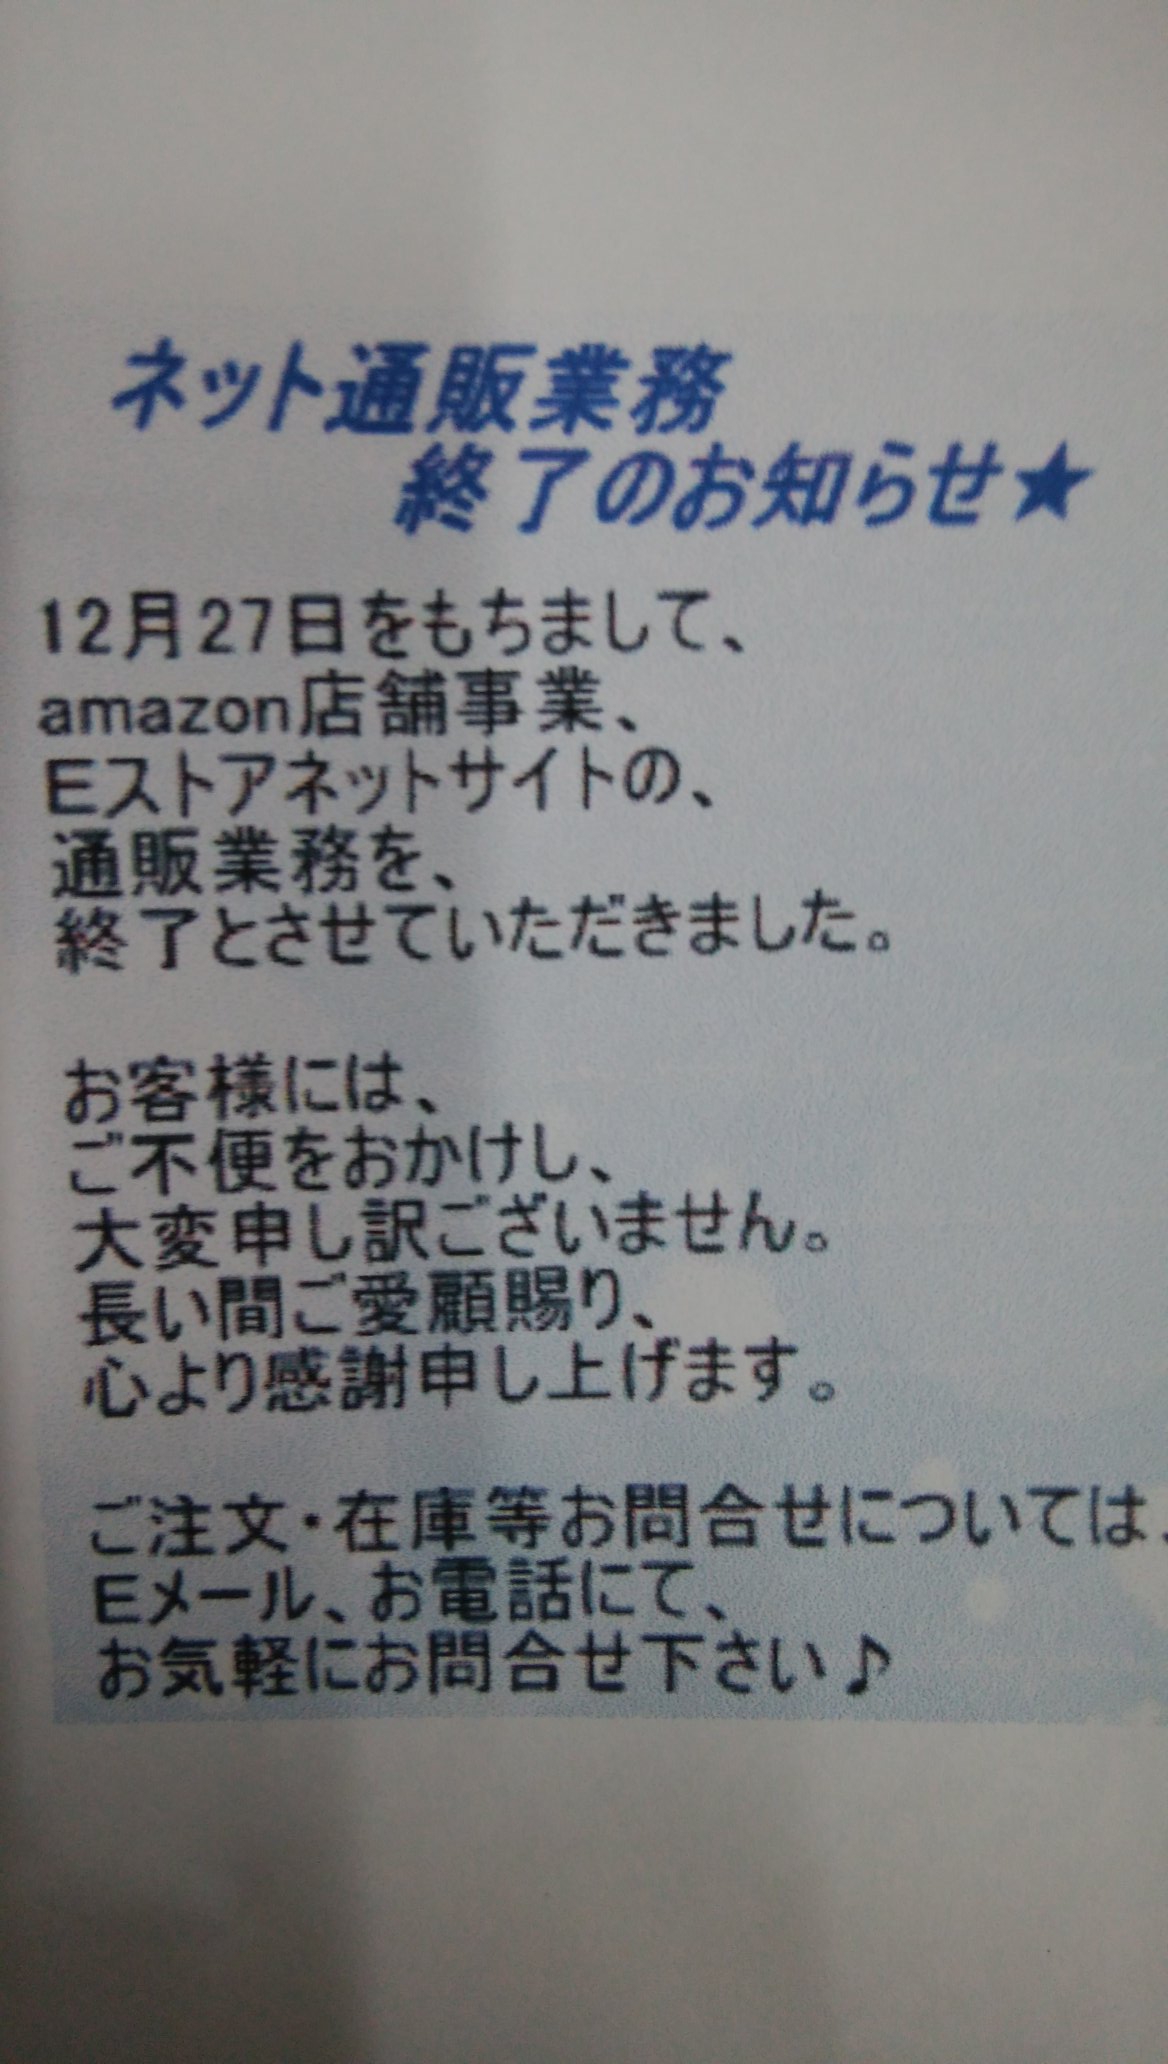 ネット通販業務
終了のお知らせ★
12月27日をもちまして、
amazon店舗事業、
Eストアネットサイトの、
通販業務を、
終了とさせていただきました。
お客様には、
ご不便をおかけし、
大変申し訳ございません。
長い間ご愛顧賜り、
心より感謝申し上げます。
ご注文・在庫等お問合せについては、
Eメール、お電話にて、
お気軽にお問合せ下さい♪